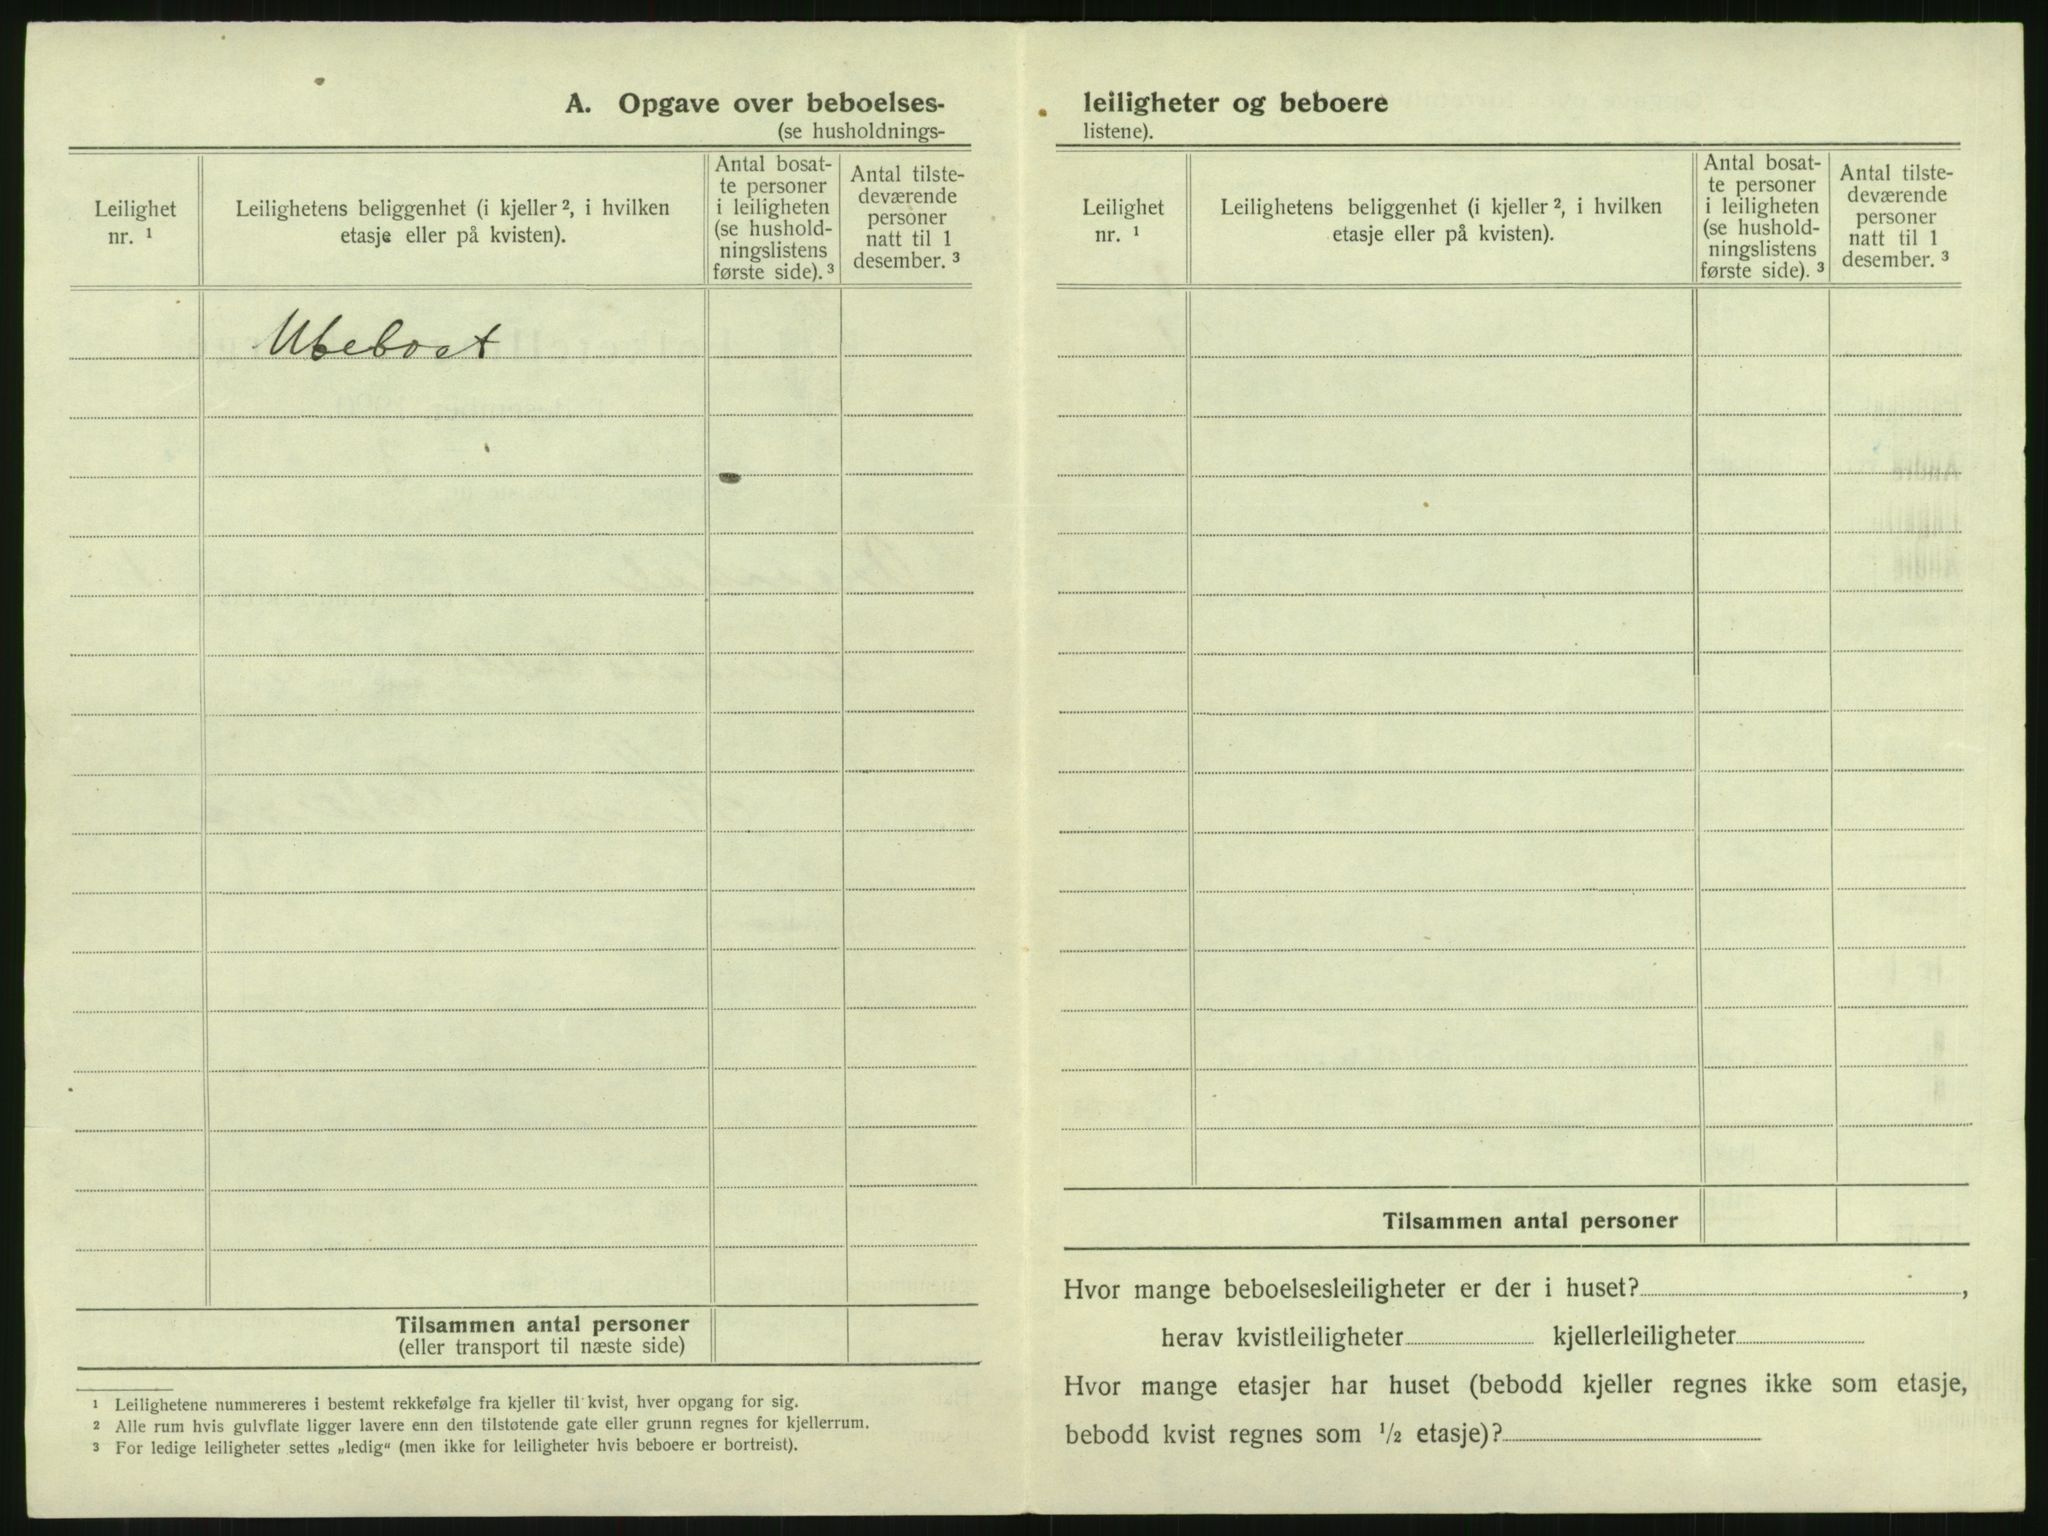 A. Opgave over beboelses-
(se husholdnings-
Leilighet
nr. ¹
Leilighetens beliggenhet (i kjeller ², i hvilken
etasje eller på kvisten).
Antal bosat-
te personer
i leiligheten
(se hushold-
ningslistens
første side). ³
Antal tilste-
deværende
personer
natt til 1
desember. ³
Ubeboet
Tilsammen antal personer
(eller transport til næste side)
¹ Leilighetene nummereres i bestemt rekkefølge fra kjeller til kvist, hver opgang for sig.
² Alle rum hvis gulvflate ligger lavere enn den tilstøtende gate eller grunn regnes for kjellerrum.
³ For ledige leiligheter settes „ledig“ (men ikke for leiligheter hvis beboere er bortreist).
leiligheter og beboere
listene).
Leilighet
nr. ¹
Leilighetens beliggenhet (i kjeller ², i hvilken
etasje eller på kvisten).
Antal bosat-
te personer
i leiligheten
(se hushold-
ningslistens
første side). ³
Antal tilste-
deværende
personer
natt til 1
desember. ³
Tilsammen antal personer
Hvor mange beboelsesleiligheter er der i huset?,
herav kvistleiligheter kjellerleiligheter
Hvor mange etasjer har huset (bebodd kjeller regnes ikke som etasje,
bebodd kvist regnes som ½ etasje)?